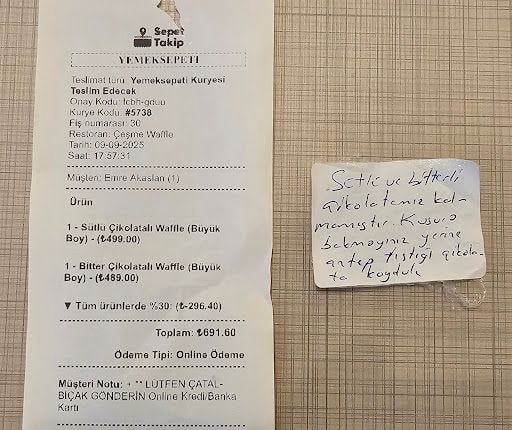 Sepet
Takip
YEMEKSEPETİ
Teslimat türü: Yemeksepeti Kuryesi
Teslim Edecek
Onay Kodu: fcbh-gouu
Kurye Kodu: #5738
Fiş numarası: 30
Restoran: Çeşme Waffle
Tarih: 09-09-2025
Saat: 17:57:31
Müşteri: Emre Akaslan (1)
Ürün
1 - Sütlü Çikolatalı Waffle (Büyük
Boy) - (₺499.00)
1 - Bitter Çikolatalı Waffle (Büyük
Boy) - (₺489.00)
▼ Tüm ürünlerde %30: (₺-296.40)
Toplam: ₺691.60
Ödeme Tipi: Online Ödeme
Müşteri Notu: + ** LÜTFEN ÇATAL-
BIÇAK GÖNDERİN Online Kredi/Banka
Kartı
Sütlü ve bitterli
çikolatamız kal-
mamıştır. Kusura
bakmayınız yerine
antep fıstığı çikola-
ta koyduk